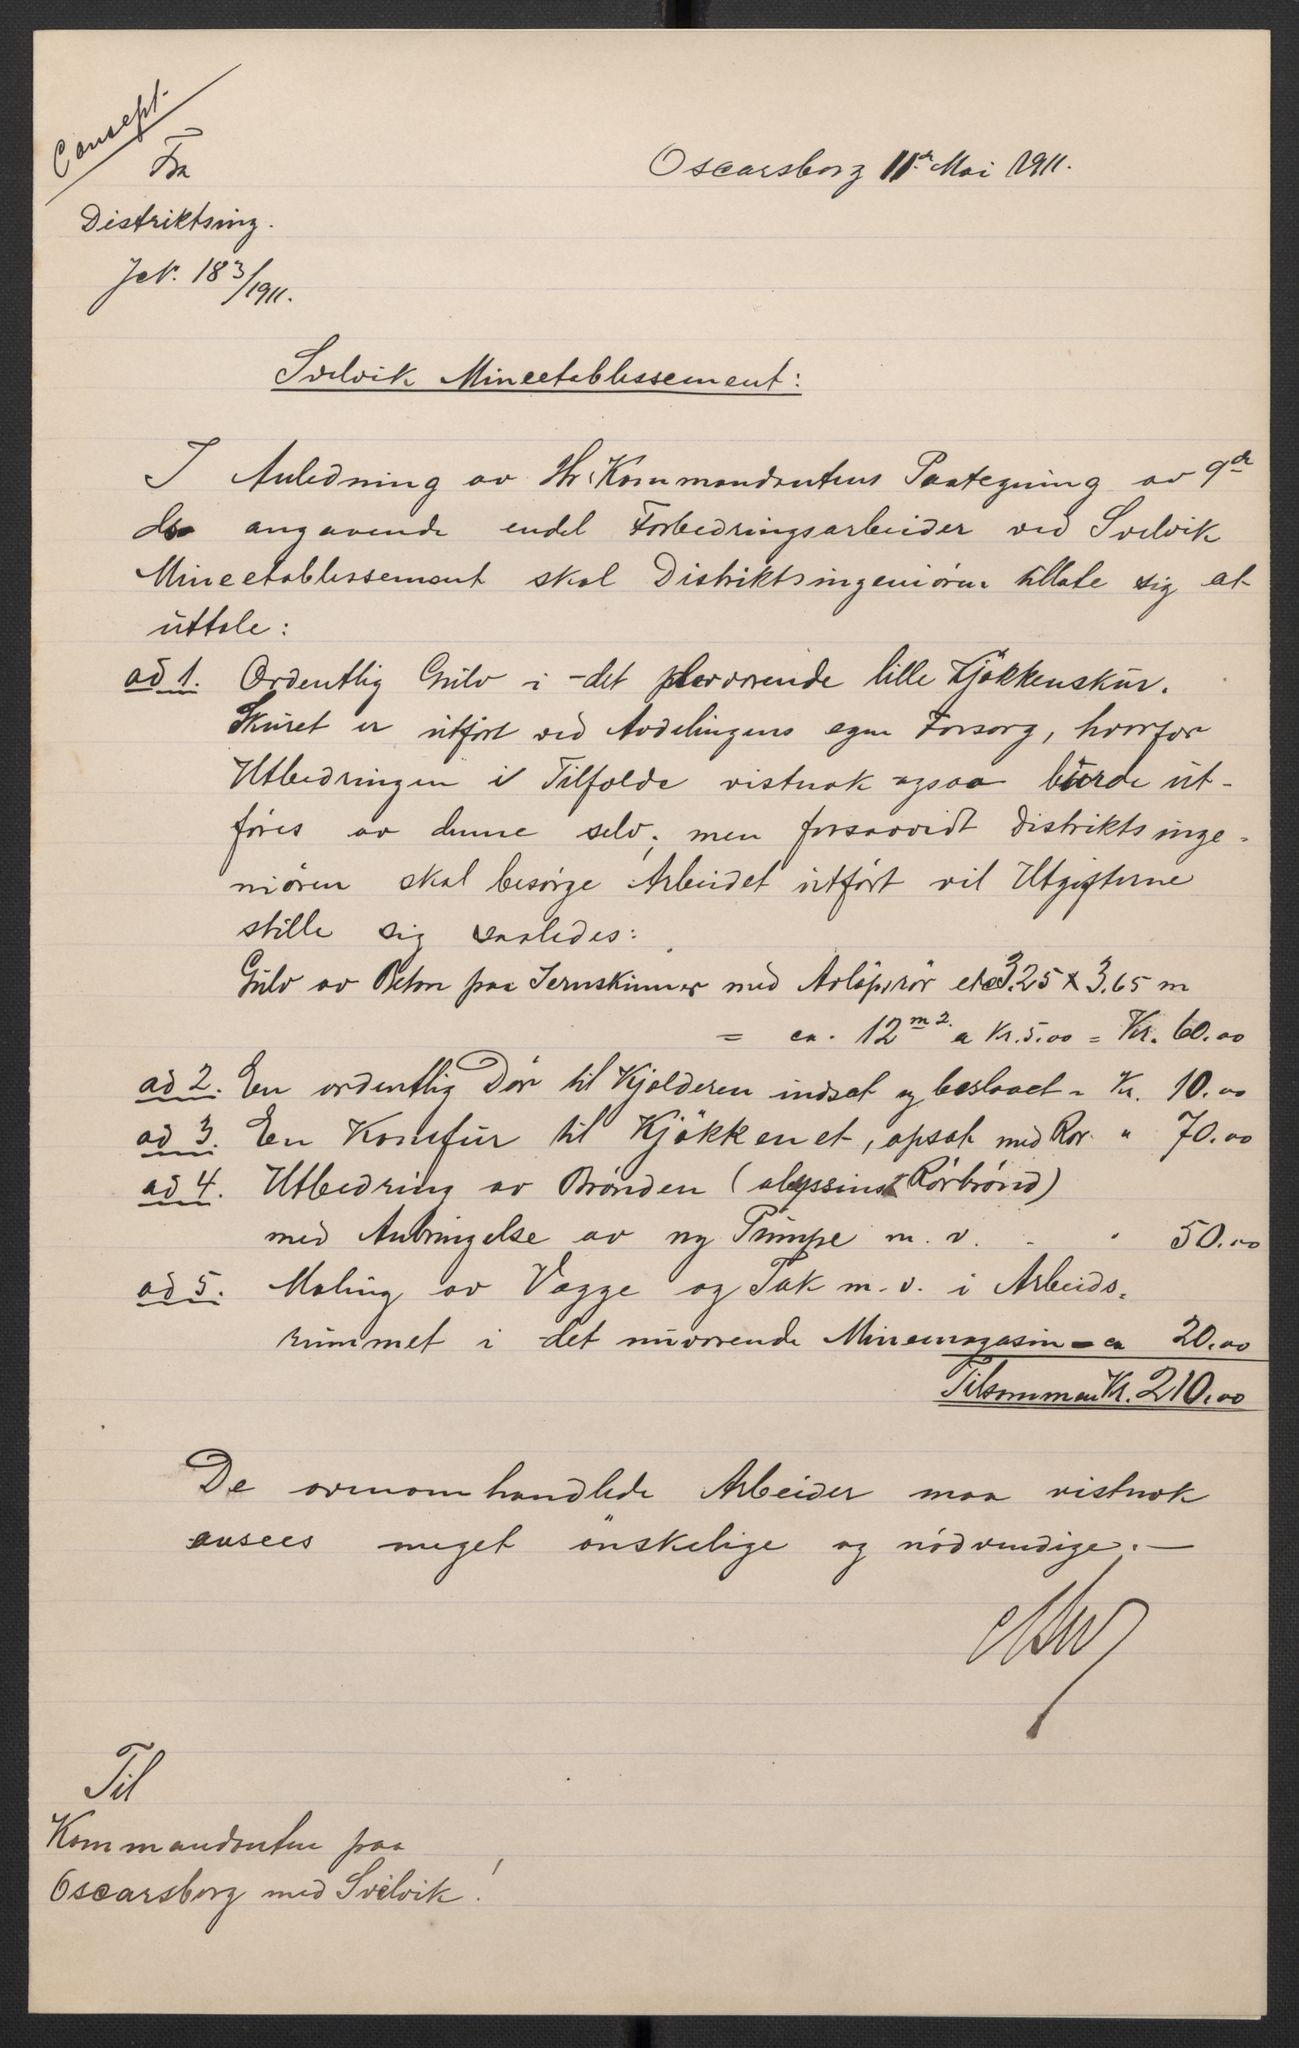 Consept.
Fra
Distriktsing.
JN. 183/1911.
Oscarsborg 11te Mai 1911.
Svelvik Mineetablissement:
I Anledning av Hr. Kommandantens Paategning av 9de
ds angaaende endel Forbedringsarbeider ved Svelvik
Mineetablissement skal Distriktsingeniören tillate sig at
uttale:
ad 1. Ordentlig Gulv i det nuværende lille Kjökkenskur.
Skuret er utfört ved Avdelingens egen Forsorg, hvorfor
Utbedringen i Tilfælde vistnok ogsaa burde ut-
föres av denne selv; men forsaavidt Distriktsinge-
niören skal besörge Arbeidet utfört vil Utgifterne
stille sig saaledes:
Gulv av Beton paa Jernskinner med Avlöpsrör etc 3.25 x 3.65 m
= ca. 12 m2. a Kr. 5.00 = Kr. 60.00
ad 2. En ordentlig Dör til Kjælderen indsat og beslaaet = Kr. 10.00
ad 3. En Komfur til Kjökkenet, opsat med Rör. " 70.00
ad 4. Utbedring av Brönden (abyssinsk Rörbrönd)
med Anbringelse av ny Pumpe m. v. - " 50.00
ad 5. Maling av Vægge og Tak m. v. i Arbeids-
rummet i det nuværende Minemagasin = ca 20.00
Tilsammen Kr. 210.00
De ovenomhandlede Arbeider maa vistnok
ansees meget önskelige og nödvendige. —
Til
Kommandanten paa
Oscarsborg med Svelvik!